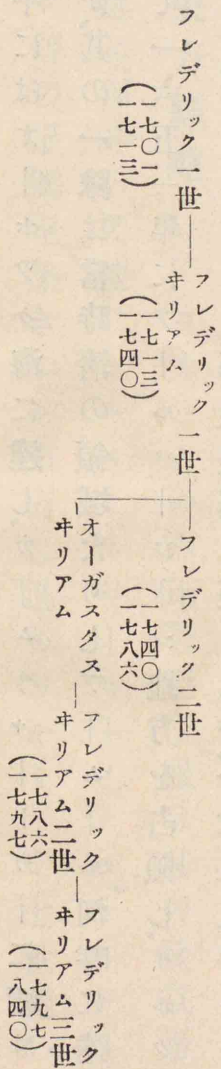 フレデリック一世
(一七〇一)
(一七一三)
フレデリック
ヰリアム 一世
(一七一三)
(一七四〇)
フレデリック二世
(一七四〇)
(一七八六)
オーガスタス
ヰリアム
フレデリック
ヰリアム二世
(一七八六)
(一七九七)
フレデリック
ヰリアム三世
(一七九七)
(一八四〇)